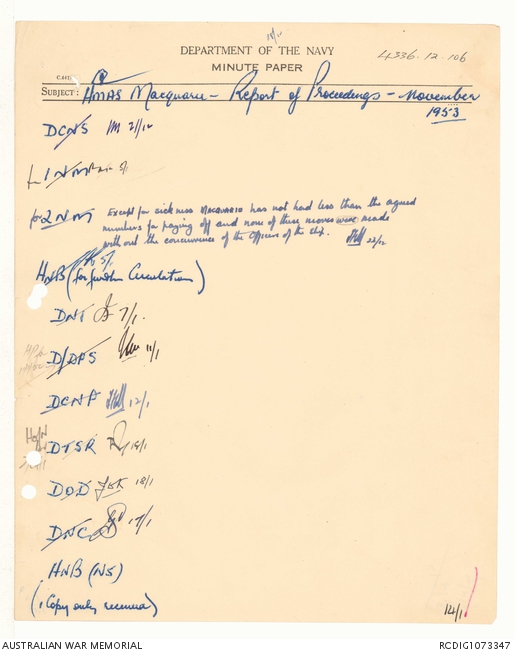 DEPARTMENT OF THE NAVY
MINUTE PAPER
4336.12.106
SUBJECT: HMAS Macquarie - Report of Proceedings - November
1953
DCNS 21/12
1NM
for 2NM Except for sickness MACQUARIE has not had less than the agreed
numbers for paying off and none of these moves were made
without the concurrence of the Officers of the ship. 22/12
HNB (for further Circulation)
DNT 7/1.
D/DPS 11/1
DCNP 12/1
DTSR 15/1
DOD 18/1
DNC 17/1
HNB (NS)
(1 Copy only received)
14/1
AUSTRALIAN WAR MEMORIAL
RCDIG1073347